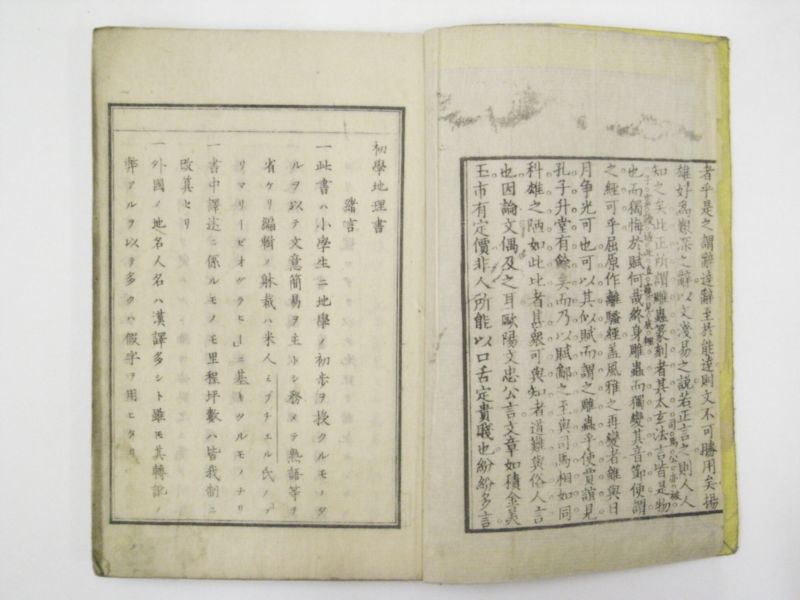 者乎是之謂辭達辭至於能達則文不可勝用矣揚
雄好爲艱深之辭以文淺易之說若正言之則人人
知之矣此正所謂雕蟲篆刻者其太玄法言皆是物
也而獨悔於賦何哉終身雕蟲而獨變其音節便謂
之經可乎屈原作離騷經蓋風雅之再變者雖與日
月爭光可也可以其似賦而謂之雕蟲乎使賈誼見
孔子升堂有餘矣而乃以賦鄙之至與司馬相如同
科雄之陋如此比者甚衆可與知者道難與俗人言
也因論文偶及之耳歐陽文忠公言文章如積金美
玉市有定價非人所能以口舌定貴賤也紛紛多言
初學地理書
緒言
一此書ハ小學生ニ地學ノ初步ヲ授クルモノタ
ルヲ以テ文意簡易ヲ主トシ務メテ熟語等ヲ
省ケリ編輯ノ躰裁ハ米人ミッチェル氏ノプ
リマリーゼオグラヒーニ基キツルモノナリ
一書中譯述ニ係ルモノモ里程坪數ハ皆我制ニ
改算セリ
一外國ノ地名人名ハ漢譯多シト雖モ其轉訛ノ
弊アルヲ以テ多クハ假字ヲ用ヒタリ